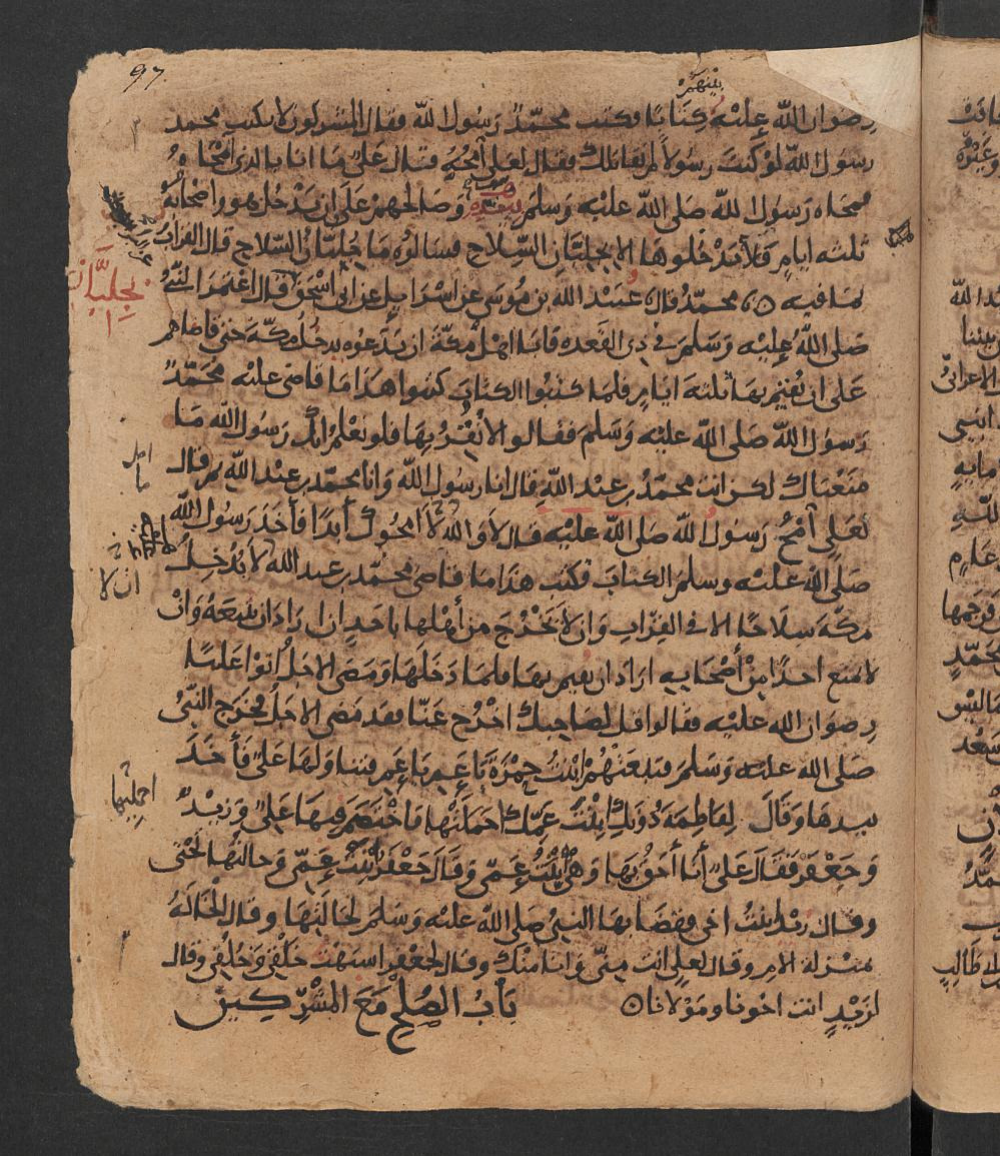 97
بينهم
رضوان الله عليه كتابا فكتب محمد رسول الله فقال المشركون لا يكتب محمد
رسول الله لو كنت رسولا لم نقاتلك فقال لعلي امحه فقال علي ما انا بالذي امحاه
فمحاه رسول الله صلى الله عليه وسلم بيده وصالحهم على ان يدخل هو واصحابه
ثلثه ايام فلا يدخلوها الا بجلبان السلاح فسالوه ما جلبان السلاح قال القراب
بما فيه محمد قال عبيد الله بن موسى عن اسرايل عن ابي اسحق قال اعتمر النبي
صلى الله عليه وسلم في ذي القعده فابا اهل مكة ان يدعوه يدخل مكة حتى قاضاهم
على ان يقيم بها ثلثة ايام فلما كتبوا الكتاب كتبوا هذا ما قاضى عليه محمد
رسول الله صلى الله عليه وسلم فقالوا لا نقر بها فلو نعلم انك رسول الله ما
منعناك لكن انت محمد بن عبد الله قال انا رسول الله وانا محمد بن عبد الله ثم قال
لعلي امح رسول الله صلى الله عليه قال لا والله لا امحوك أبدا فأخذ رسول الله
صلى الله عليه وسلم الكتاب فكتب هذا ما قاضى محمد بن عبد الله لا يدخل
مكة سلاحا الا في القراب وان لا يخرج من أهلها باحد ان اراد ان يتبعه وان
لا يمنع احدا من أصحابه اراد ان يقيم بها فلما دخلها ومضى الاجل اتوا عليا
رضوان الله عليه فقالوا قل لصاحبك اخرج عنا فقد مضى الاجل فخرج النبي
صلى الله عليه وسلم فتبعتهم ابنت حمزة يا عم يا عم فتناولها علي فأخذ
بيدها وقال لفاطمه دونك ابنت عمك احملتها فاختصم فيها علي وزيد
وجعفر فقال علي أنا أحق بها وهي ابنت عمي وقال جعفر ابنت عمي وخالتها تحتي
وقال زيد ابنت اخي فقضا بها النبي صلى الله عليه وسلم لخالتها وقال الخالة
بمنزلة الام وقال لعلي انت مني وانا منك وقال لجعفر اشبهت خلقي وخلقي وقال
لزيد انت اخونا ومولانا باب الصلح مع المشركين
بجلبان
ان لا
احمليها